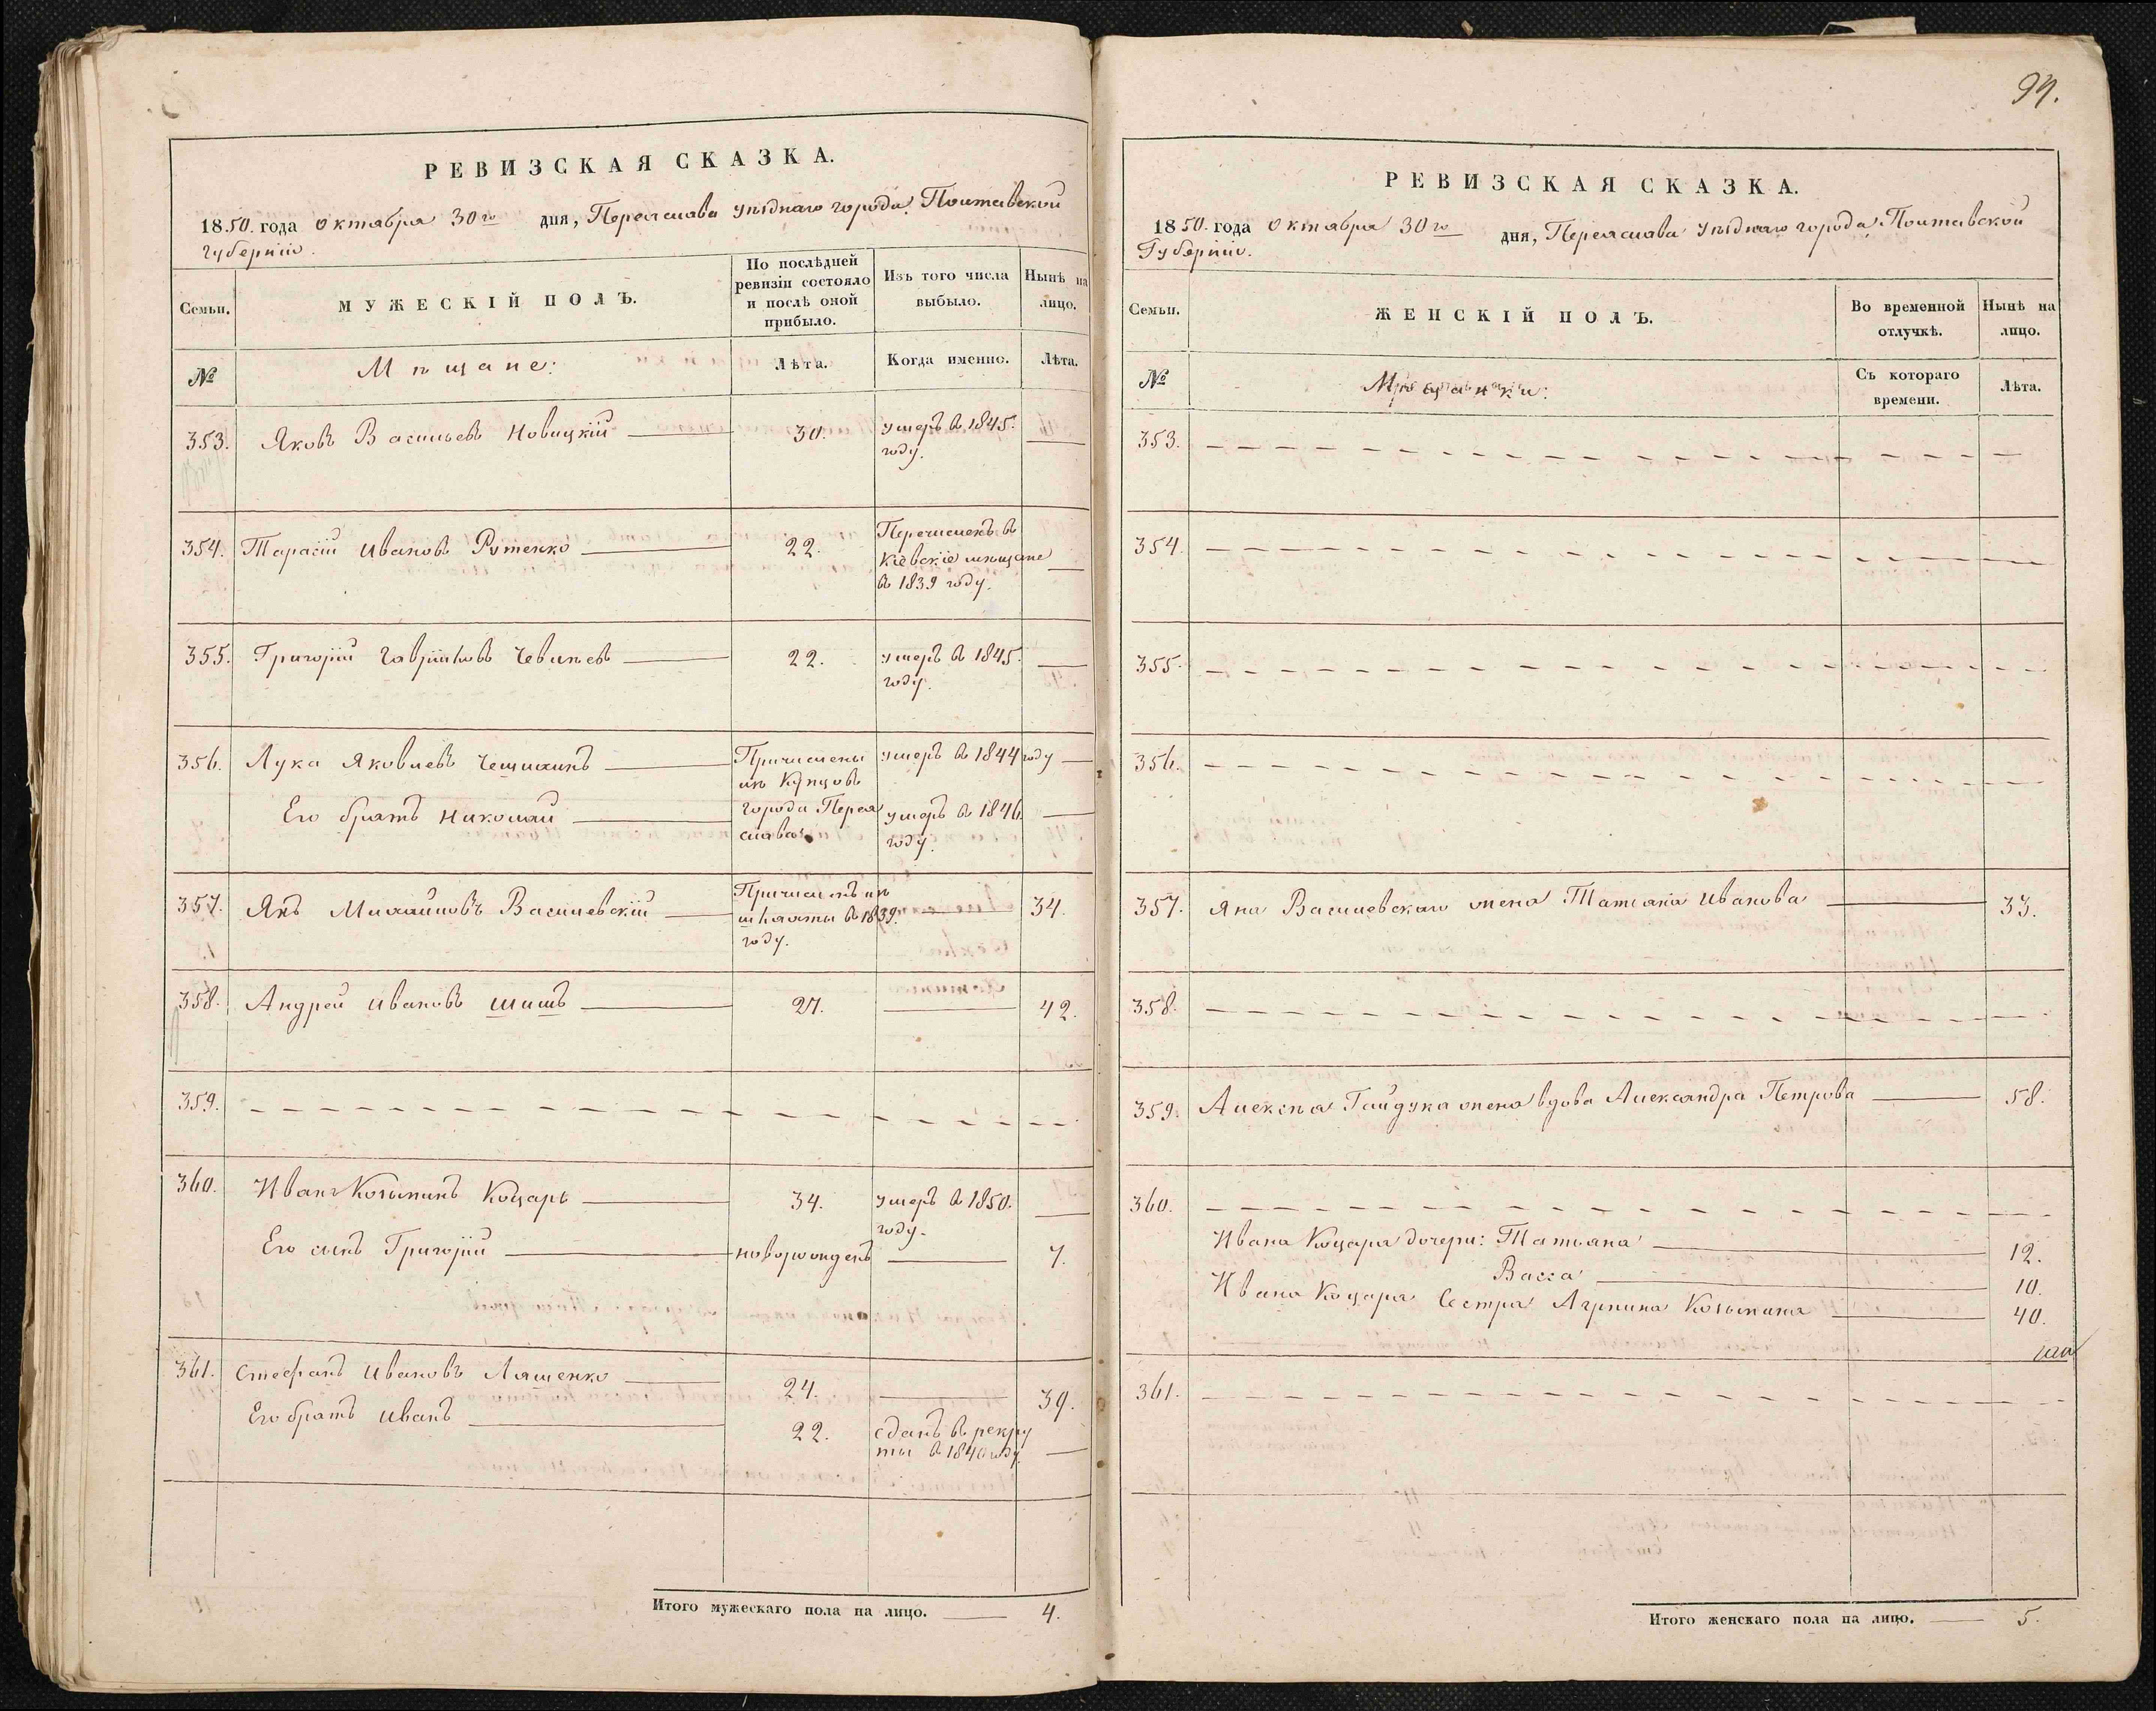 РЕВИЗСКАЯ СКАЗКА.
1850. года Октября 30го дня, Переяслава уѣзднаго города, Полтавской
Губерніи.
Семьи.
МУЖЕСКІЙ ПОЛЪ.
По послѣдней
ревизіи состояло
и послѣ оной
прибыло.
Изъ того числа
выбыло.
Нынѣ на
лицо.
№
Мѣщане:
Лѣта.
Когда именно.
Лѣта.
353. Яковъ Васильевъ Новицкій 30. умеръ въ 1845.
году.
354. Тарасій Ивановъ Рутенко 22. Перечисленъ въ
Кіевскіе мѣщане
въ 1839 году.
355. Григорій Гавріиловъ 22. умеръ въ 1845.
году.
356. Лука Яковлевъ Чешихинъ Причислены умеръ въ 1844 году
изъ Купцовъ
Его братъ Николай города Перея умеръ въ 1846.
слава году.
357. Янъ Михайловъ Василевскій Причисленъ изъ 34.
шляхты въ 1839.
году.
358. Андрей Ивановъ Шишъ 27. 42.
359.
360. Иванъ Козьминъ Коцарь 34. умеръ въ 1850.
году.
Его сынъ Григорій новорожденъ 7.
361. Стефанъ Ивановъ Ляшенко 24. 39.
Его братъ Иванъ 22. сданъ въ рекру
ты въ 1840 году.
Итого мужескаго пола на лицо. 4.
94.
РЕВИЗСКАЯ СКАЗКА.
1850. года Октября 30го дня, Переяслава уѣзднаго города, Полтавской
Губерніи.
Семьи.
ЖЕНСКІЙ ПОЛЪ.
Во временной
отлучкѣ.
Нынѣ на
лицо.
№
Мѣщанки:
Съ котораго
времени.
Лѣта.
353.
354.
355.
356.
357. Яна Василевскаго жена Татіана Иванова 33.
358.
359. Алексѣя Гайдука жена вдова Александра Петрова 58.
360.
Ивана Коцаря дочери: Татьяна 12.
Васса 10.
Ивана Коцаря Сестра Агрпина Козьмина 40.
361.
Итого женскаго пола на лицо. 5.